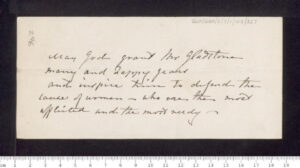 May God grant Mr Gladstone
many and happy years
and inspire him to defend the
cause of women – who are the most
afflicted and the most needy –